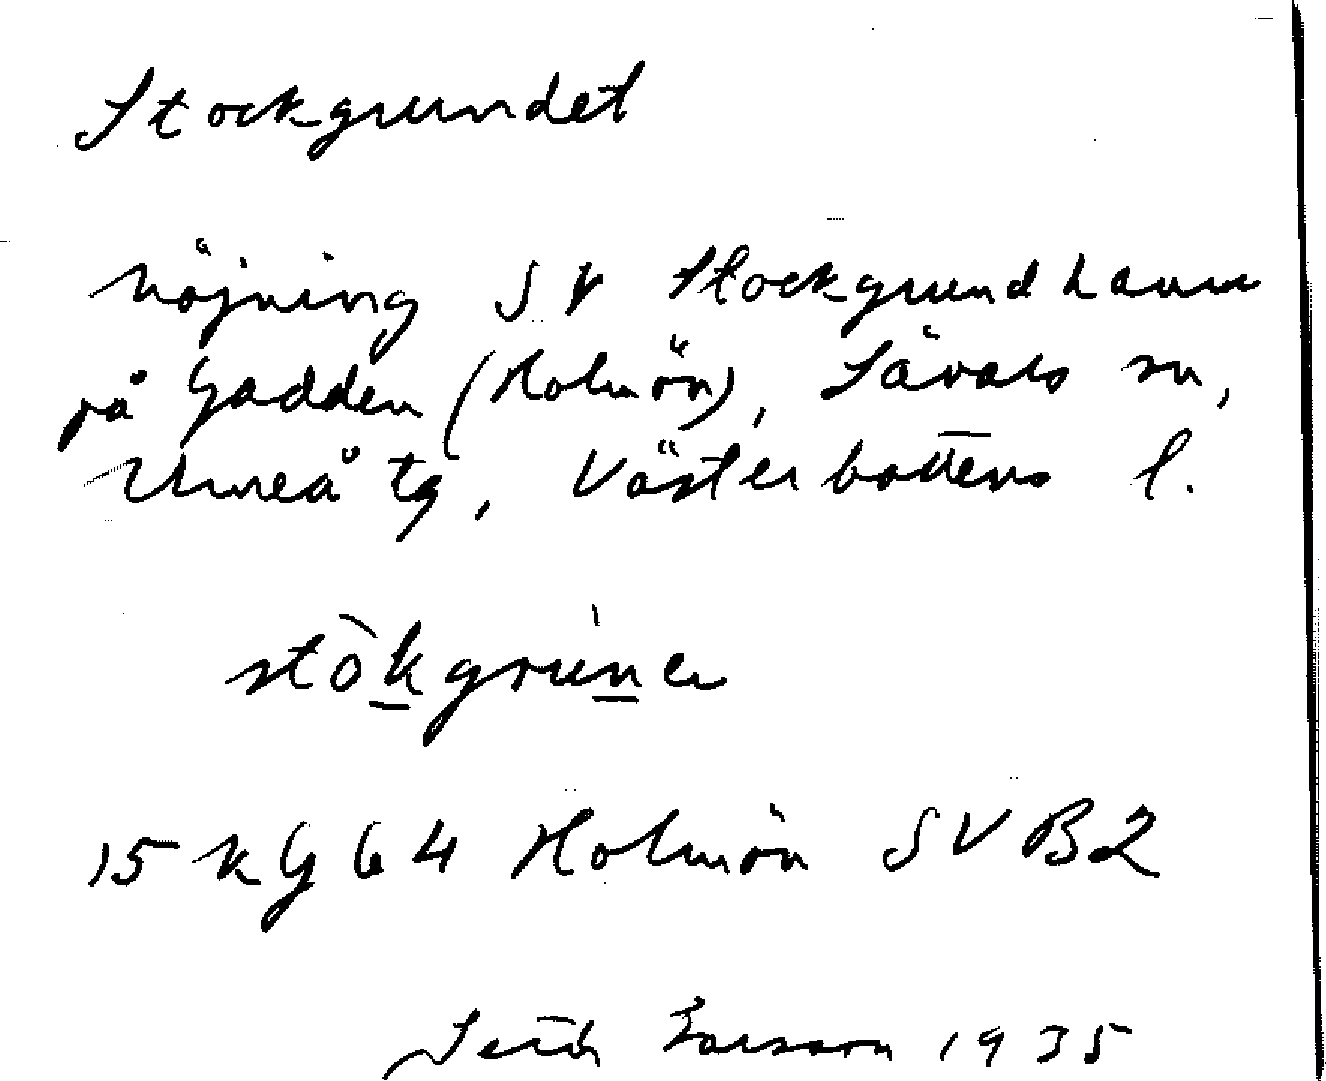 Stockgrundet
höjning SV Stockgrundhamn
på Gadden (Holmön), Sävars sn,
Umeå tg, Västerbottens l.
stòkgrúne
15 KG 64 Holmön SV B2
Larsson 1935